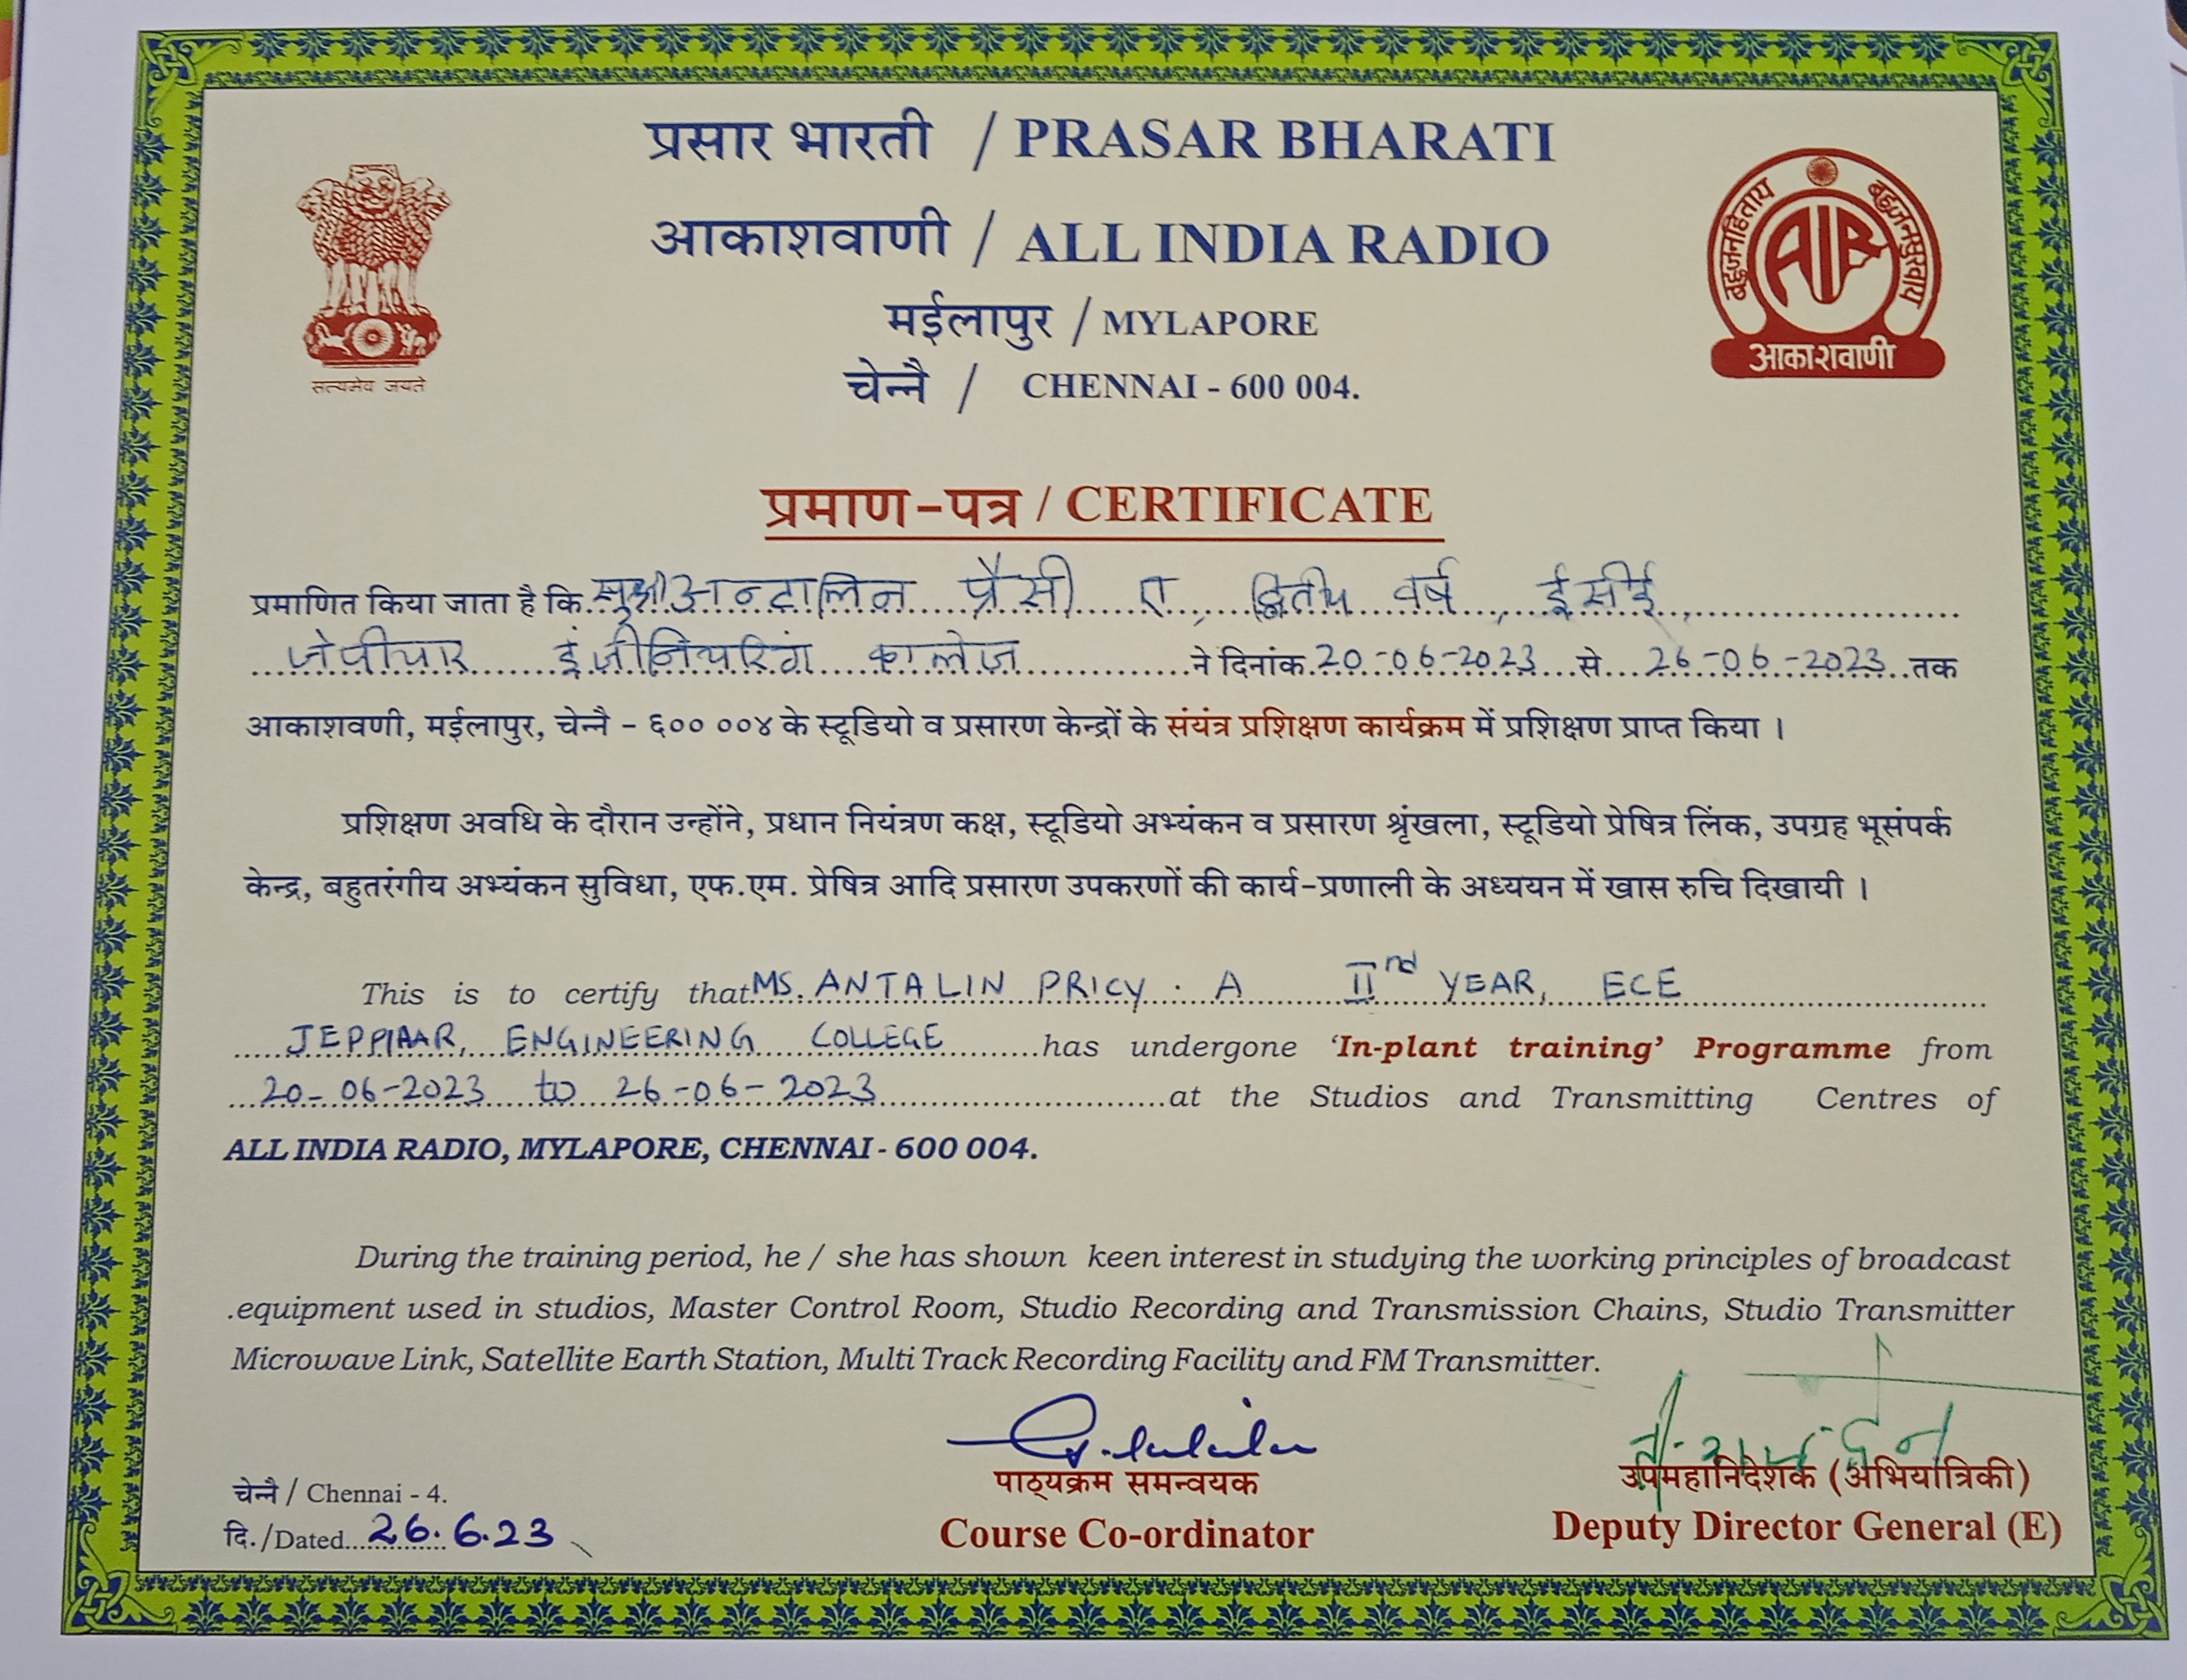 प्रसार भारती / PRASAR BHARATI
आकाशवाणी / ALL INDIA RADIO
मईलापुर / MYLAPORE
चेन्नै / CHENNAI - 600 004.
सत्यमेव जयते
बहुजनहिताय बहुजनसुखाय
AIR
आकाशवाणी
प्रमाण-पत्र / CERTIFICATE
प्रमाणित किया जाता है कि सुश्री अन्टालिन प्रैसी ए, द्वितीय वर्ष, ईसीई,
जेपीयार इंजीनियरिंग कालेज ने दिनांक 20-06-2023 से 26-06-2023 तक
आकाशवणी, मईलापुर, चेन्नै - ६०० ००४ के स्टूडियो व प्रसारण केन्द्रों के संयंत्र प्रशिक्षण कार्यक्रम में प्रशिक्षण प्राप्त किया ।
प्रशिक्षण अवधि के दौरान उन्होंने, प्रधान नियंत्रण कक्ष, स्टूडियो अभ्यंकन व प्रसारण श्रृंखला, स्टूडियो प्रेषित्र लिंक, उपग्रह भूसंपर्क
केन्द्र, बहुतरंगीय अभ्यंकन सुविधा, एफ.एम. प्रेषित्र आदि प्रसारण उपकरणों की कार्य-प्रणाली के अध्ययन में खास रुचि दिखायी ।
This is to certify that MS. ANTALIN PRICY . A IInd YEAR, ECE
JEPPIAAR, ENGINEERING COLLEGE has undergone ‘In-plant training’ Programme from
20-06-2023 to 26-06-2023 at the Studios and Transmitting Centres of
ALL INDIA RADIO, MYLAPORE, CHENNAI - 600 004.
During the training period, he / she has shown keen interest in studying the working principles of broadcast
.equipment used in studios, Master Control Room, Studio Recording and Transmission Chains, Studio Transmitter
Microwave Link, Satellite Earth Station, Multi Track Recording Facility and FM Transmitter.
चेन्नै / Chennai - 4.
दि./Dated 26.6.23
पाठ्यक्रम समन्वयक
Course Co-ordinator
उपमहानिदेशक (अभियांत्रिकी)
Deputy Director General (E)